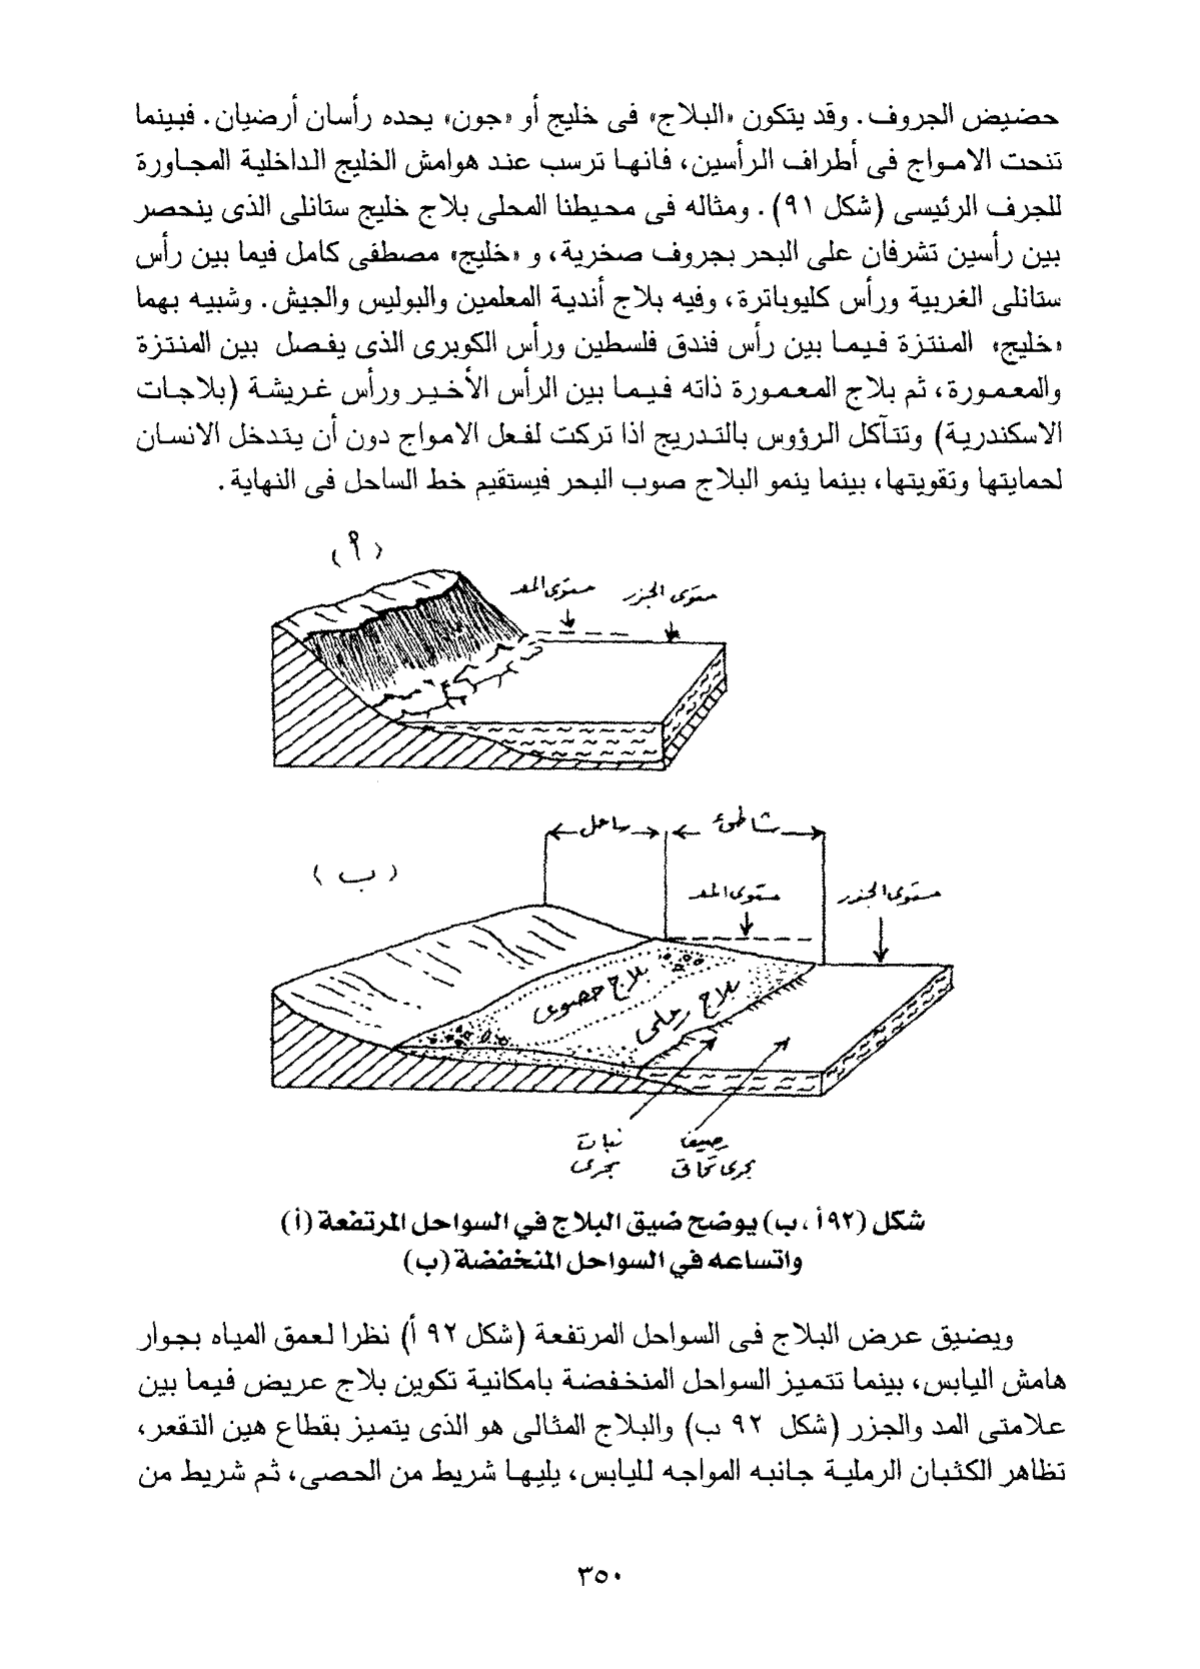 حضيض الجروف. وقد يتكون «البلاج» فى خليج أو «جون» يحده رأسان أرضيان. فبينما
تنحت الامواج فى أطراف الرأسين، فانها ترسب عند هوامش الخليج الداخلية المجاورة
للجرف الرئيسى (شكل ٩١). ومثاله فى محيطنا المحلى بلاج خليج ستانلى الذى ينحصر
بين رأسين تشرفان على البحر بجروف صخرية، و «خليج» مصطفى كامل فيما بين رأس
ستانلى الغربية ورأس كليوباترة، وفيه بلاج أندية المعلمين والبوليس والجيش. وشبيه بهما
«خليج» المنتزة فيما بين رأس فندق فلسطين ورأس الكوبرى الذى يفصل بين المنتزة
والمعمورة، ثم بلاج المعمورة ذاته فيما بين الرأس الأخير ورأس غريشة (بلاجات
الاسكندرية) وتتآكل الرؤوس بالتدريج اذا تركت لفعل الامواج دون أن يتدخل الانسان
لحمايتها وتقويتها، بينما ينمو البلاج صوب البحر فيستقيم خط الساحل فى النهاية.
(أ)
مستوى الجزر مستوى المد
شاطئ ساحل
(ب)
مستوى الجزر مستوى المد
بلاج حصوى
بلاج رملى
رصيف نبات
بحرى تحاتى بحرى
شكل (٩٢أ، ب) يوضح ضيق البلاج في السواحل المرتفعة (أ)
واتساعه في السواحل المنخفضة (ب)
ويضيق عرض البلاج فى السواحل المرتفعة (شكل ٩٢ أ) نظرا لعمق المياه بجوار
هامش اليابس، بينما تتميز السواحل المنخفضة بامكانية تكوين بلاج عريض فيما بين
علامتى المد والجزر (شكل ٩٢ ب) والبلاج المثالى هو الذى يتميز بقطاع هين التقعر،
تظاهر الكثبان الرملية جانبه المواجه لليابس، يليها شريط من الحصى، ثم شريط من
٣٥٠